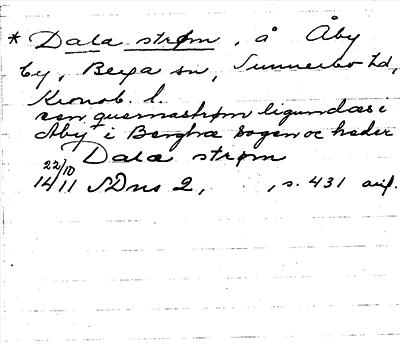 * Dala strøm, å Åby
by, Berga sn, Sunnerbo hd,
Kronob. l.
een quernastrøm liggindæs i
Aby i Bergha sogen oc heder
Dala strøm
22/10
1411 SDns 2, , s. 431 avf.